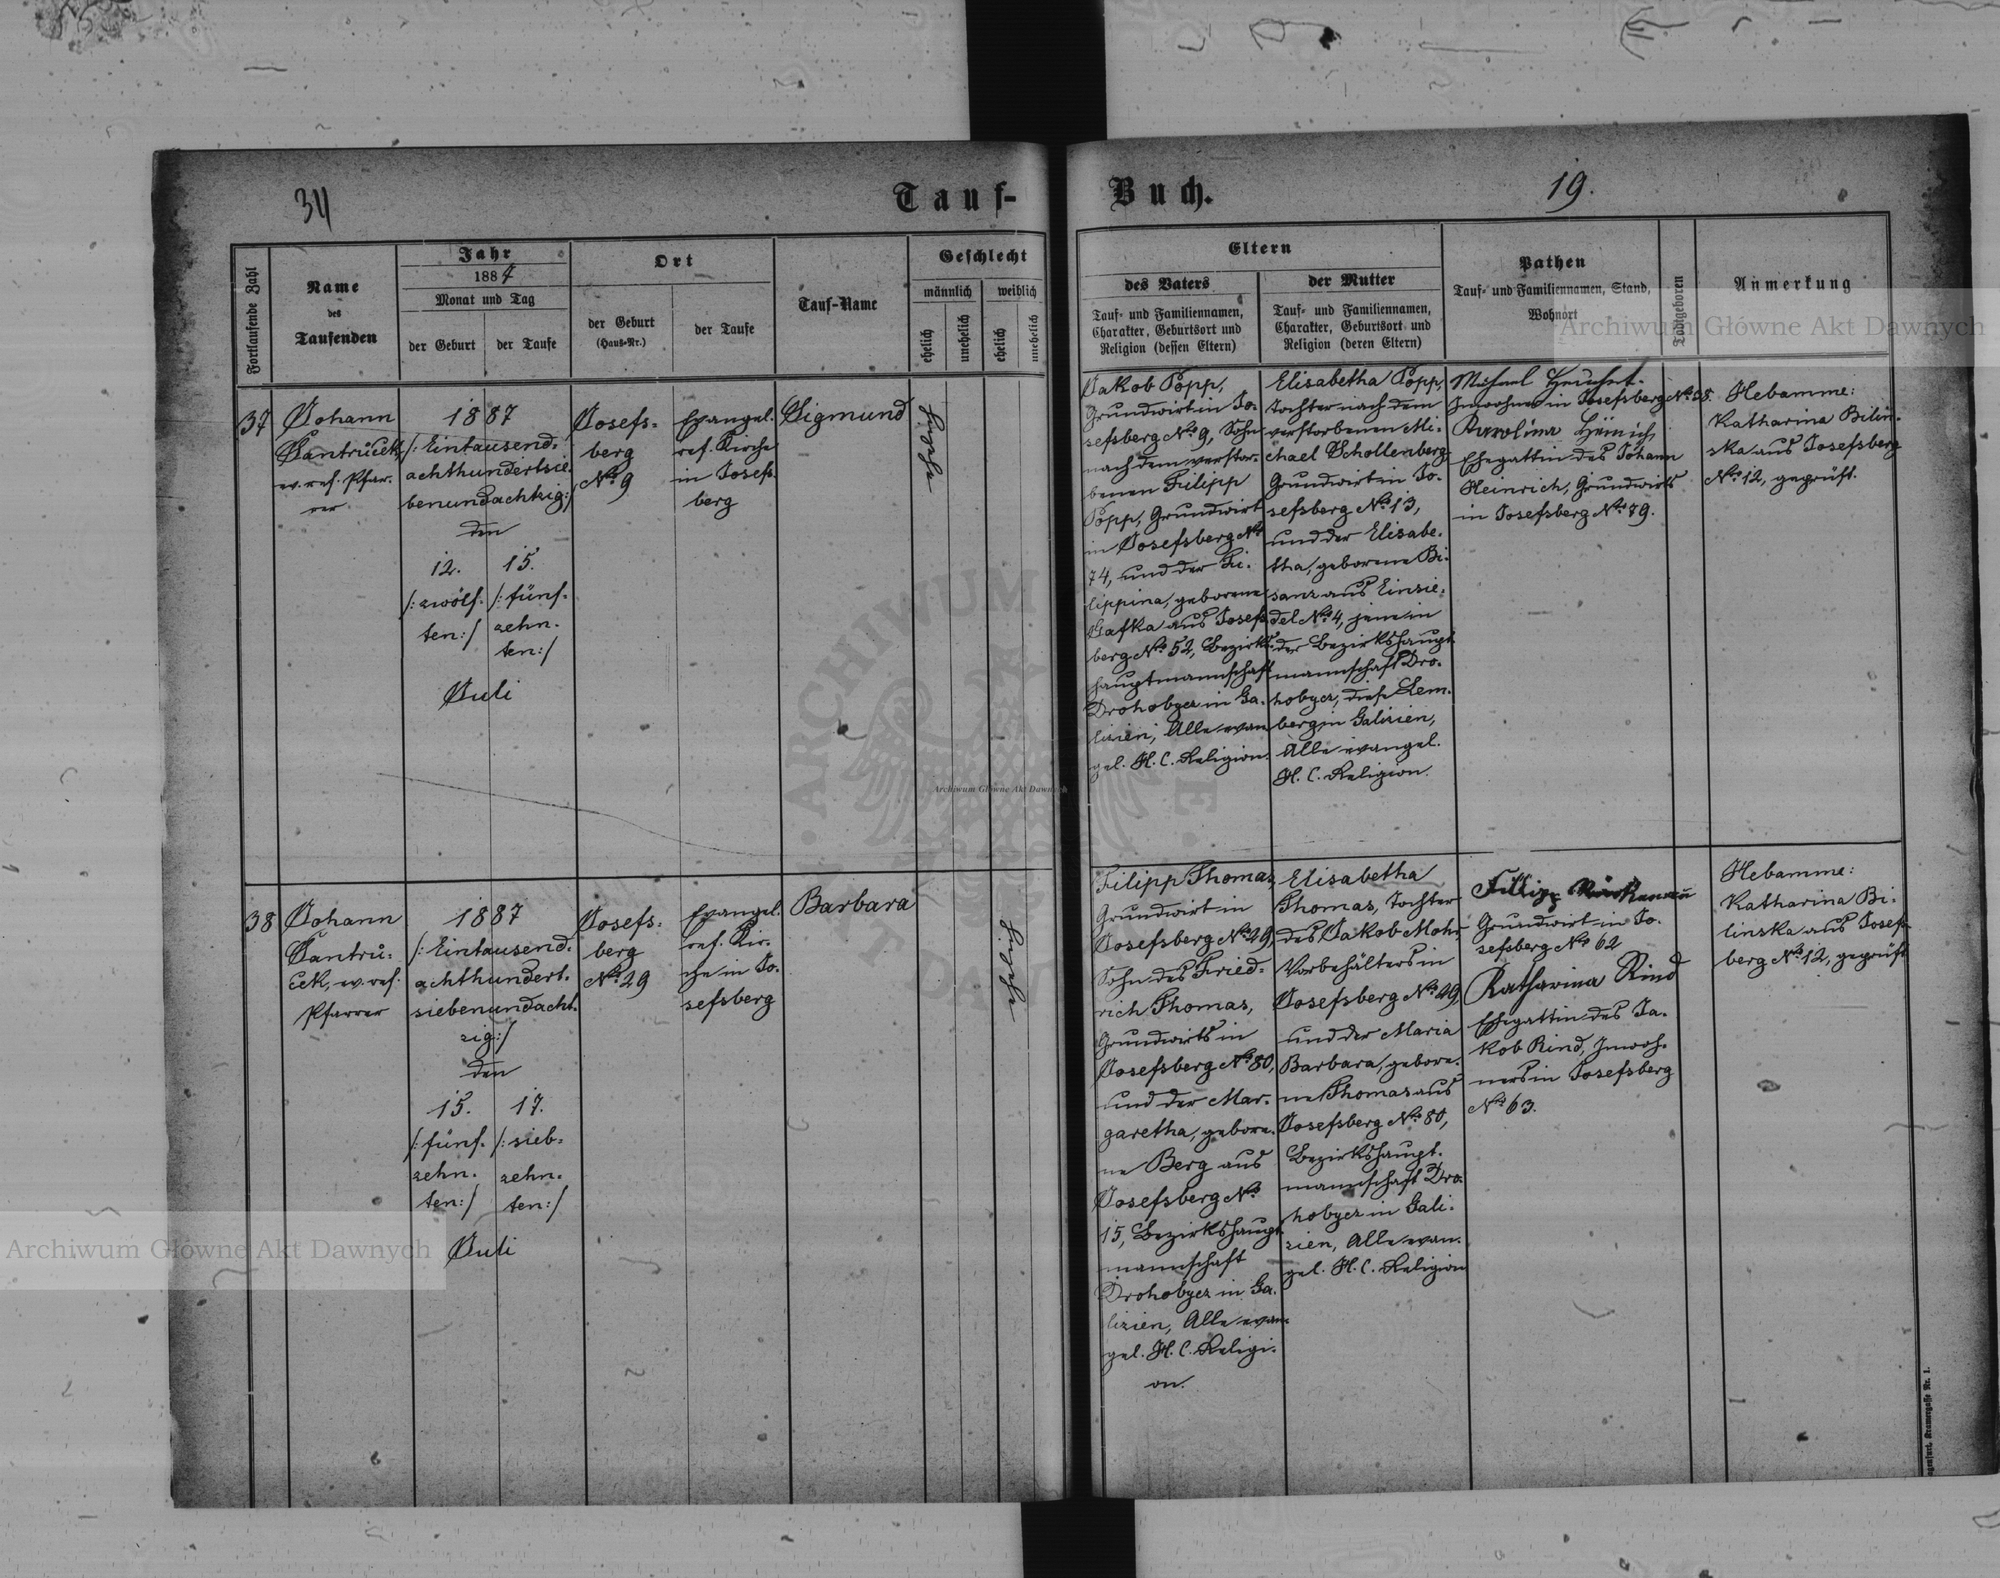 34
Tauf-
Buch.
19.
Fortlaufende Zahl
Name
des
Taufenden
Jahr
1887
Monat und Tag
der Geburt
der Taufe
Ort
der Geburt
(Haus-Nr.)
der Taufe
Tauf-Name
Geschlecht
männlich
weiblich
ehelich
unehelich
ehelich
unehelich
Eltern
des Vaters
Tauf- und Familiennamen,
Charakter, Geburtsort und
Religion (dessen Eltern)
der Mutter
Tauf- und Familiennamen,
Charakter, Geburtsort und
Religion (deren Eltern)
Pathen
Tauf- und Familiennamen, Stand,
Wohnort
Todtgeboren
Anmerkung
37
Johann
Jantrůcek
ev. ref. Pfar-
rer
1887
/: Eintausend-
achthundertsie-
benundachtzig :/
den
12.
/: zwölf-
ten :/
15.
/: fünf-
zehn-
ten :/
Juli
Josefs-
berg
No. 9
Evangel.
ref. Kirche
in Josefs-
berg
Sigmund
Jakob Popp,
Grundwirt in Jo-
sefsberg No. 9, Sohn
nach dem verstor-
benen Filipp
Popp, Grundwirt
in Josefsberg No.
74, und der Fi-
lippina, geborene
Gafka aus Josefs-
berg No. 52, Bezirks-
hauptmannschaft
Drohobycz in Ga-
lizien, Alle evan-
gel. H. C. Religion.
Elisabetha Popp,
Tochter nach dem
verstorbenen Mi-
chael Schollenberg
Grundwirt in Jo-
sefsberg No. 13,
und der Elisabe-
tha, geborene Bi-
sanz aus Einsie-
del No. 4, jene in
der Bezirkshaupt-
mannschaft Dro-
hobycz, diese Lem-
berg in Galizien,
Alle evangel.
H. C. Religion.
Michael
Inwohner in Josefsberg No. 38.
Karolina
Ehegattin des Johann
Heinrich, Grundwirts
in Josefsberg No. 79.
Hebamme:
Katharina Bilin-
ska aus Josefsberg
No. 12, geprüft.
38
Johann
Jantrů-
cek, ev. ref.
Pfarrer
1887
/: Eintausend-
achthundert-
siebenundacht-
zig :/
den
15.
/: fünf-
zehn-
ten :/
17.
/: sieb-
zehn-
ten :/
Juli
Josefs-
berg
No. 29
Evangel.
ref. Kir-
che in Jo-
sefsberg
Barbara
Filipp Thomas,
Grundwirt in
Josefsberg No. 29,
Sohn des Fried-
rich Thomas,
Grundwirts in
Josefsberg No. 80,
und der Mar-
garetha, gebore-
ne Berg aus
Josefsberg No.
15, Bezirkshaupt-
mannschaft
Drohobycz in Ga-
lizien, Alle evan-
gel. H. C. Religi-
on.
Elisabetha
Thomas, Tochter
des Jakob Mohr
Vorbehälters in
Josefsberg No. 29,
und der Maria
Barbara, gebore-
ne Thomas aus
Josefsberg No. 80,
Bezirkshaupt-
mannschaft Dro-
hobycz in Gali-
zien, Alle evan-
gel. H. C. Religion
Fillipp
Grundwirt in Jo-
sefsberg No. 62
Katharina Rind
Ehegattin des Ja-
kob Rind, Inwoh-
ners in Josefsberg
No. 63.
Hebamme:
Katharina Bi-
linska aus Josefs-
berg No. 12, geprüft
Archiwum Główne Akt Dawnych
Archiwum Główne Akt Dawnych
Archiwum Główne Akt Dawnych